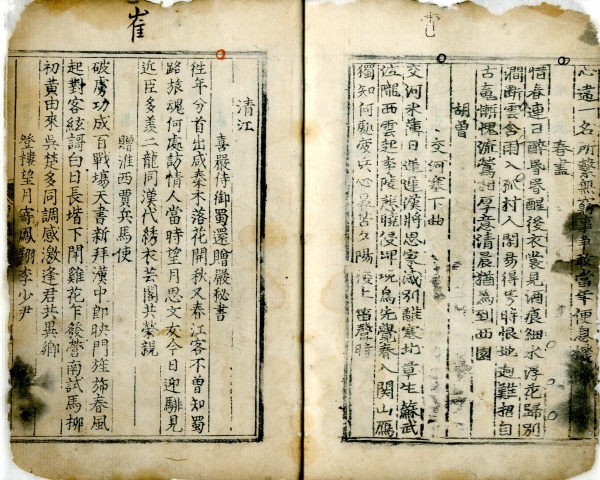 心盡 名所繫無窮事爭敢當年便息
春盡
惜春連日醉昏昏醒後衣裳見酒痕細水浮花歸別
澗斷雲含雨入孤村人閑易得芳時恨地迥難招自
古䰟慚愧流鶯相厚意清晨猶為到西園
胡曾
交河塞下曲
交河冰薄日遲遲漢將思家感別離塞北草生蘇武
泣隴西雲起李陵悲曉侵雉堞烏先覺春入關山鴈
獨知何處疲兵心最苦夕陽樓上笛聲時
崔
清江
喜嚴侍御蜀還贈嚴秘書
往年分首出咸秦木落花開秋又春江客不曾知蜀
路旅魂何處訪情人當時望月思文友今日迎騑見
近臣多羨二龍同漢代綉衣芸閣共榮親
贈淮西賈兵馬使
破虜功成百戰場天書新拜漢中郎映門旌旆春風
起對客絃謌白日長堦下閗雞花乍發營南試馬栁
初黃由來吳楚多同調感激逢君共異鄉
登樓望月寄鳳翔李少尹